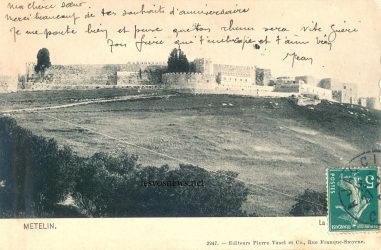 ma chère sœur.
Merci beaucoup de tes souhaits d'anniversaire
Je me porte bien et pense que ton rhume sera vite guéri
Ton frère qui t'embrasse et t'aime bien
Jean
lesvosnews.net
METELIN.
La
3247. - Editeurs Pierre Vanel et Co., Rue Franque-Smyrne.
5